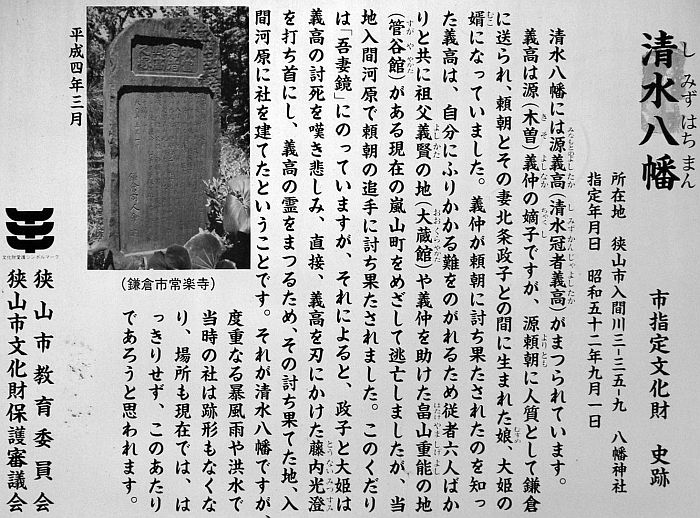 清水八幡
しみずはちまん
市指定文化財　史跡
所在地　狭山市入間川三-三五-九　八幡神社
指定年月日　昭和五十二年九月一日
清水八幡には源義高(清水冠者義高)がまつられています。
義高は源(木曽)義仲の嫡子ですが、源頼朝に人質として鎌倉
に送られ、頼朝とその妻北条政子との間に生まれた娘、大姫の
婿になっていました。義仲が頼朝に討ち果たされたのを知っ
た義高は、自分にふりかかる難をのがれるため従者六人ばか
りと共に祖父義賢の地(大蔵館)や義仲を助けた畠山重能の地
(菅谷館)がある現在の嵐山町をめざして逃亡しましたが、当
地入間河原で頼朝の追手に討ち果たされました。このくだり
は「吾妻鏡」にのっていますが、それによると、政子と大姫は
義高の討死を嘆き悲しみ、直接、義高を刃にかけた藤内光澄
を打ち首にし、義高の霊をまつるため、その討ち果てた地、入
間河原に社を建てたということです。それが清水八幡ですが、
度重なる暴風雨や洪水で
当時の社は跡形もなくな
り、場所も現在では、は
っきりせず、このあたり
であろうと思われます。
(鎌倉市常楽寺)
平成四年三月
文化財愛護シンボルマーク
狭山市教育委員会
狭山市文化財保護審議会